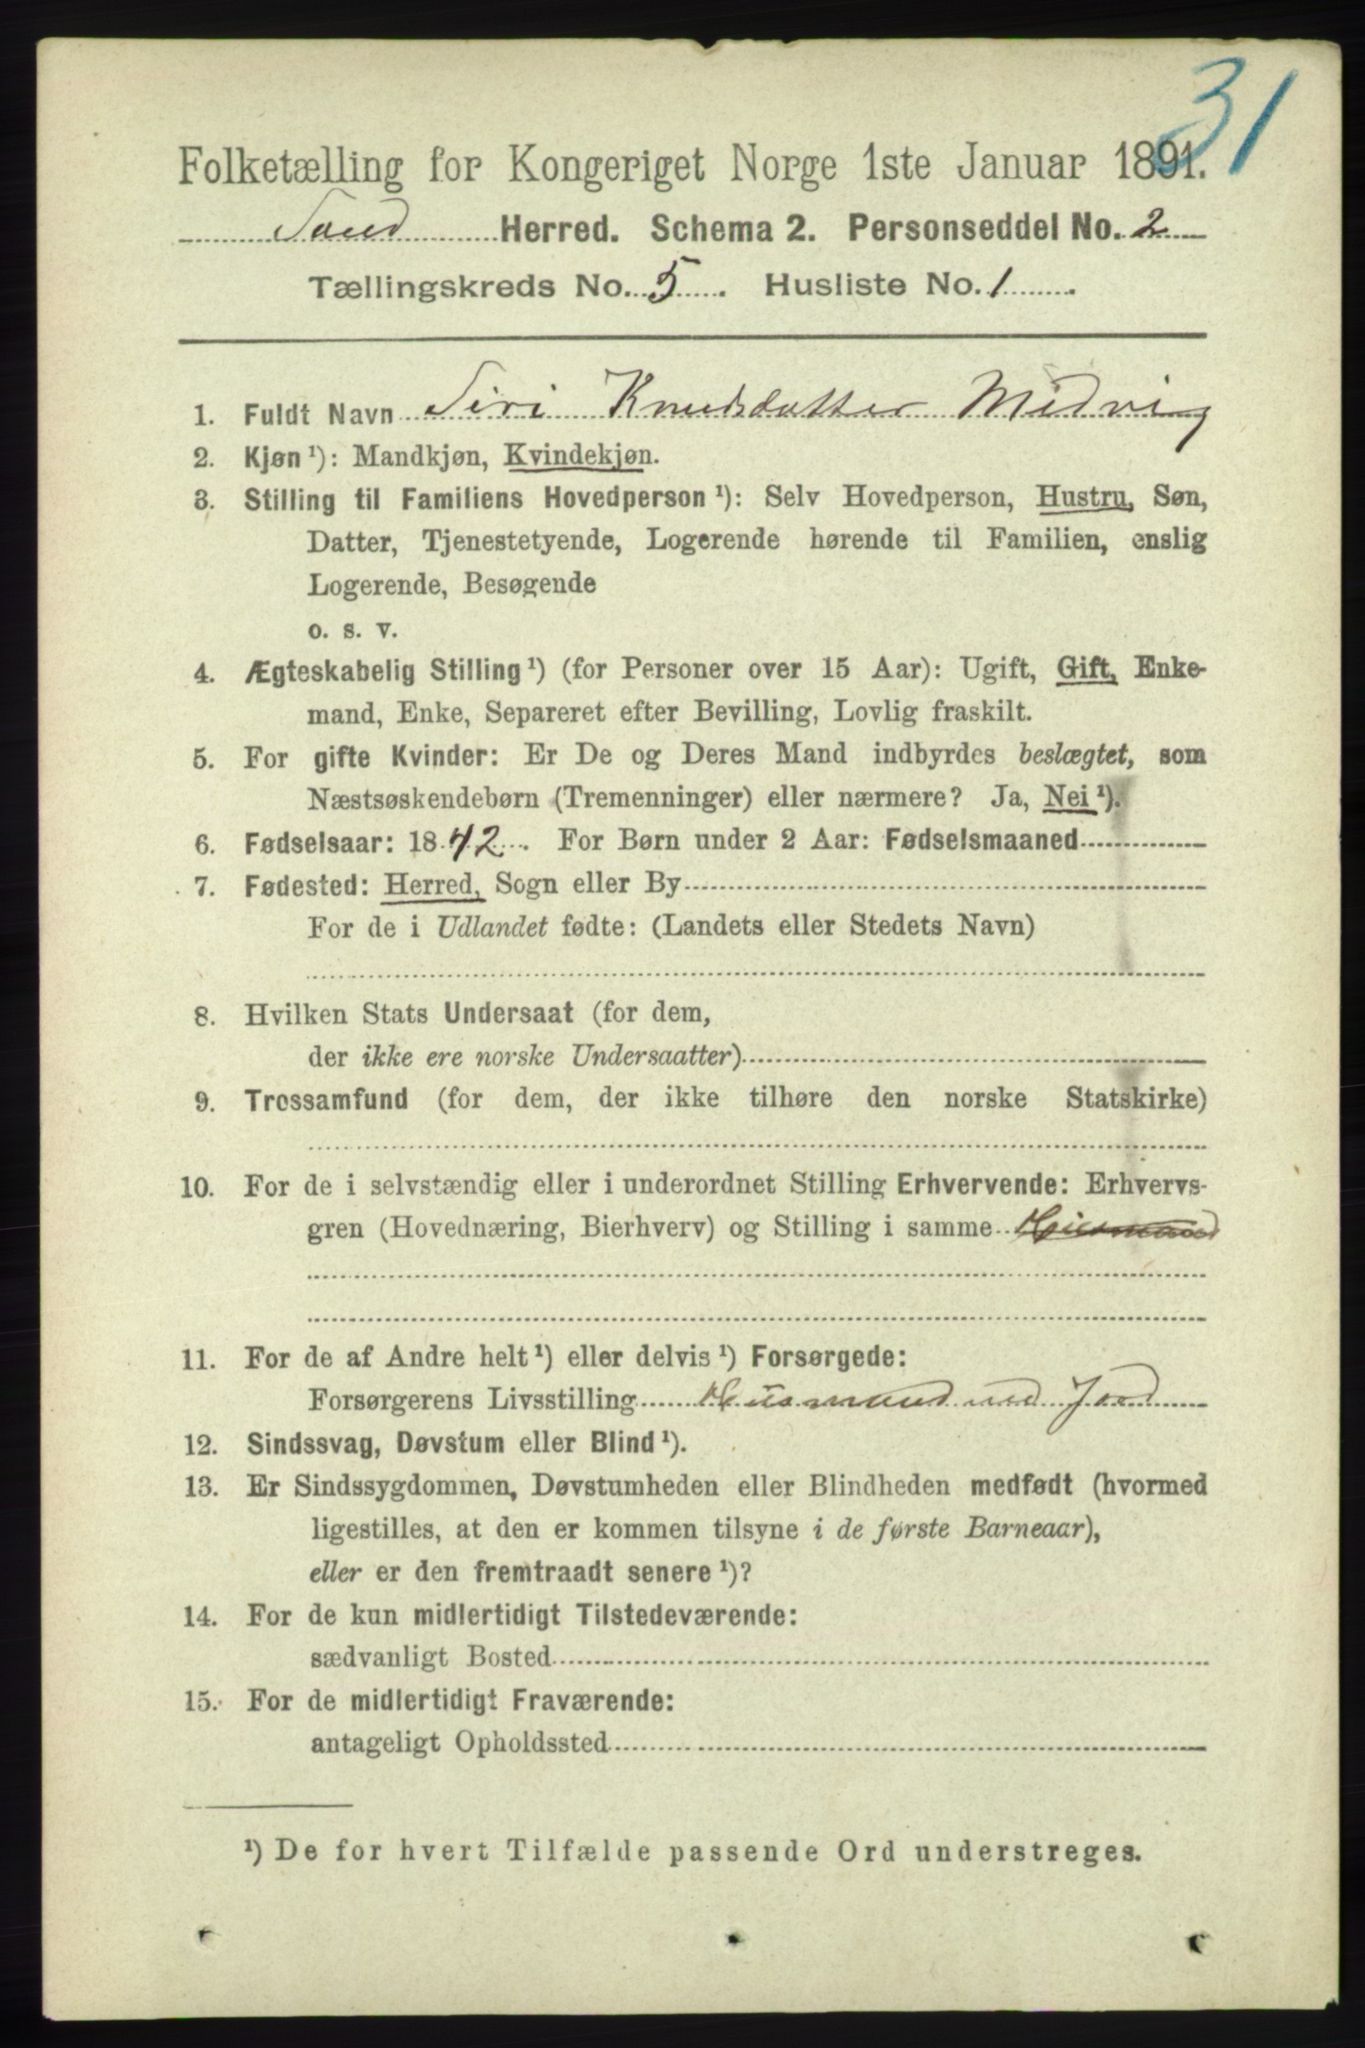 31
Folketælling for Kongeriget Norge 1ste Januar 1891.
Sand Herred. Schema 2. Personseddel No. 2
Tællingskreds No. 5. Husliste No. 1.
1. Fuldt Navn Siri Knudsdatter Midvig
2. Kjøn¹): Mandkjøn, Kvindekjøn.
3. Stilling til Familiens Hovedperson¹): Selv Hovedperson, Hustru, Søn,
Datter, Tjenestetyende, Logerende hørende til Familien, enslig
Logerende, Besøgende
o. s. v.
4. Ægteskabelig Stilling¹) (for Personer over 15 Aar): Ugift, Gift, Enke-
mand, Enke, Separeret efter Bevilling, Lovlig fraskilt.
5. For gifte Kvinder: Er De og Deres Mand indbyrdes beslægtet, som
Næstsøskendebørn (Tremenninger) eller nærmere? Ja, Nei¹).
6. Fødselsaar: 1842. For Børn under 2 Aar: Fødselsmaaned
7. Fødested: Herred, Sogn eller By
For de i Udlandet fødte: (Landets eller Stedets Navn)
8. Hvilken Stats Undersaat (for dem,
der ikke ere norske Undersaatter)
9. Trossamfund (for dem, der ikke tilhøre den norske Statskirke)
10. For de i selvstændig eller i underordnet Stilling Erhvervende: Erhvervs-
gren (Hovednæring, Bierhverv) og Stilling i samme Husmand
11. For de af Andre helt¹) eller delvis¹) Forsørgede:
Forsørgerens Livsstilling Husmand med Jord
12. Sindssvag, Døvstum eller Blind¹).
13. Er Sindssygdommen, Døvstumheden eller Blindheden medfødt (hvormed
ligestilles, at den er kommen tilsyne i de første Barneaar),
eller er den fremtraadt senere¹)?
14. For de kun midlertidigt Tilstedeværende:
sædvanligt Bosted
15. For de midlertidigt Fraværende:
antageligt Opholdssted
¹) De for hvert Tilfælde passende Ord understreges.